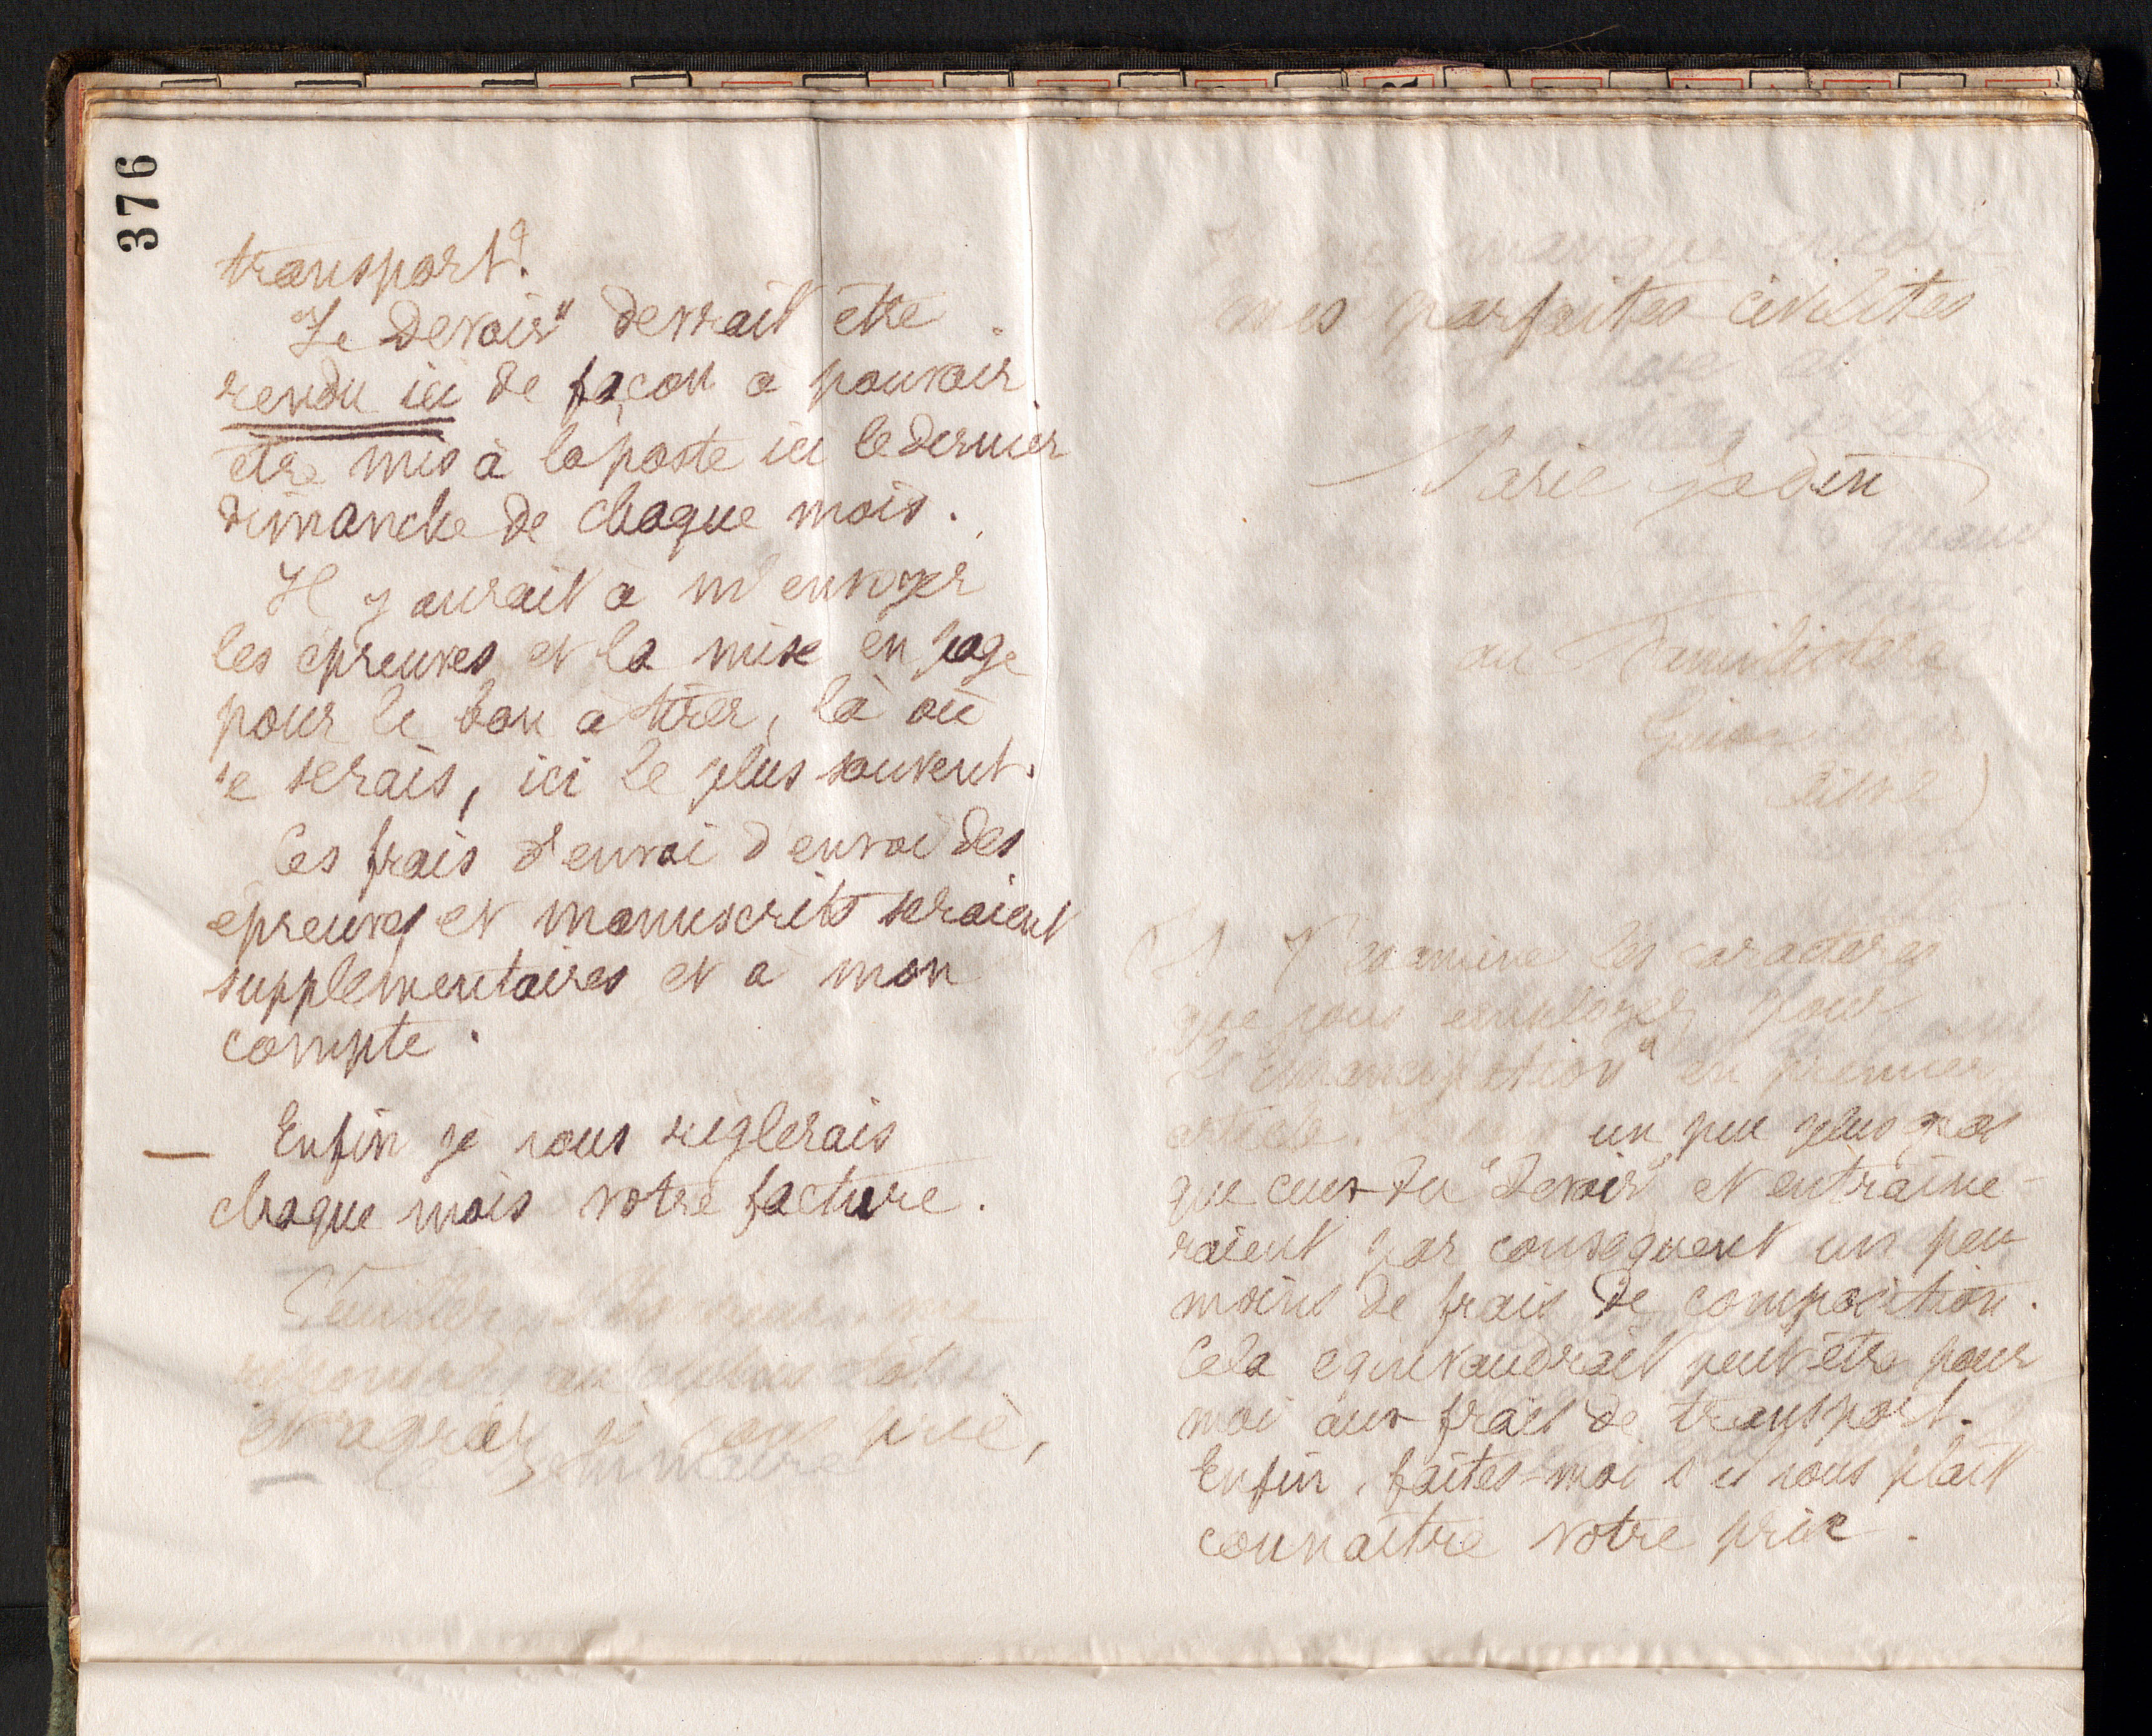 376
transport?
"Le Devoir" devrait être
rendu ici de façon a pouvoir
être mis à la poste ici le dernier
dimanche de chaque mois.
Il y aurait à m'envoyer
les épreuves et la mise en page
pour le bon à tirer, là où
je serais, ici le plus souvent.
Les frais d'envoi d'envoi des
épreuves et manuscrits seraient
supplementaires et a mon
compte.
Enfin je vous réglerais
chaque mois votre facture.
Veuillez Monsieur, me
répondre au plus tôt
et agréer je vous prie,
mes parfaites civilités
Marie
au Familistère
Guise
Aisne)
J'examine les caractères
que vous employez pour
"L'Emancipation" en premier
article. un peu plus gros
que ceux du "Devoir" et entraine-
raient par consequent un peu
moins de frais de composition.
Cela equivaudrait peut être pour
moi aux frais de transport.
Enfin, faites-moi s'il vous plaît
connaître votre prix.